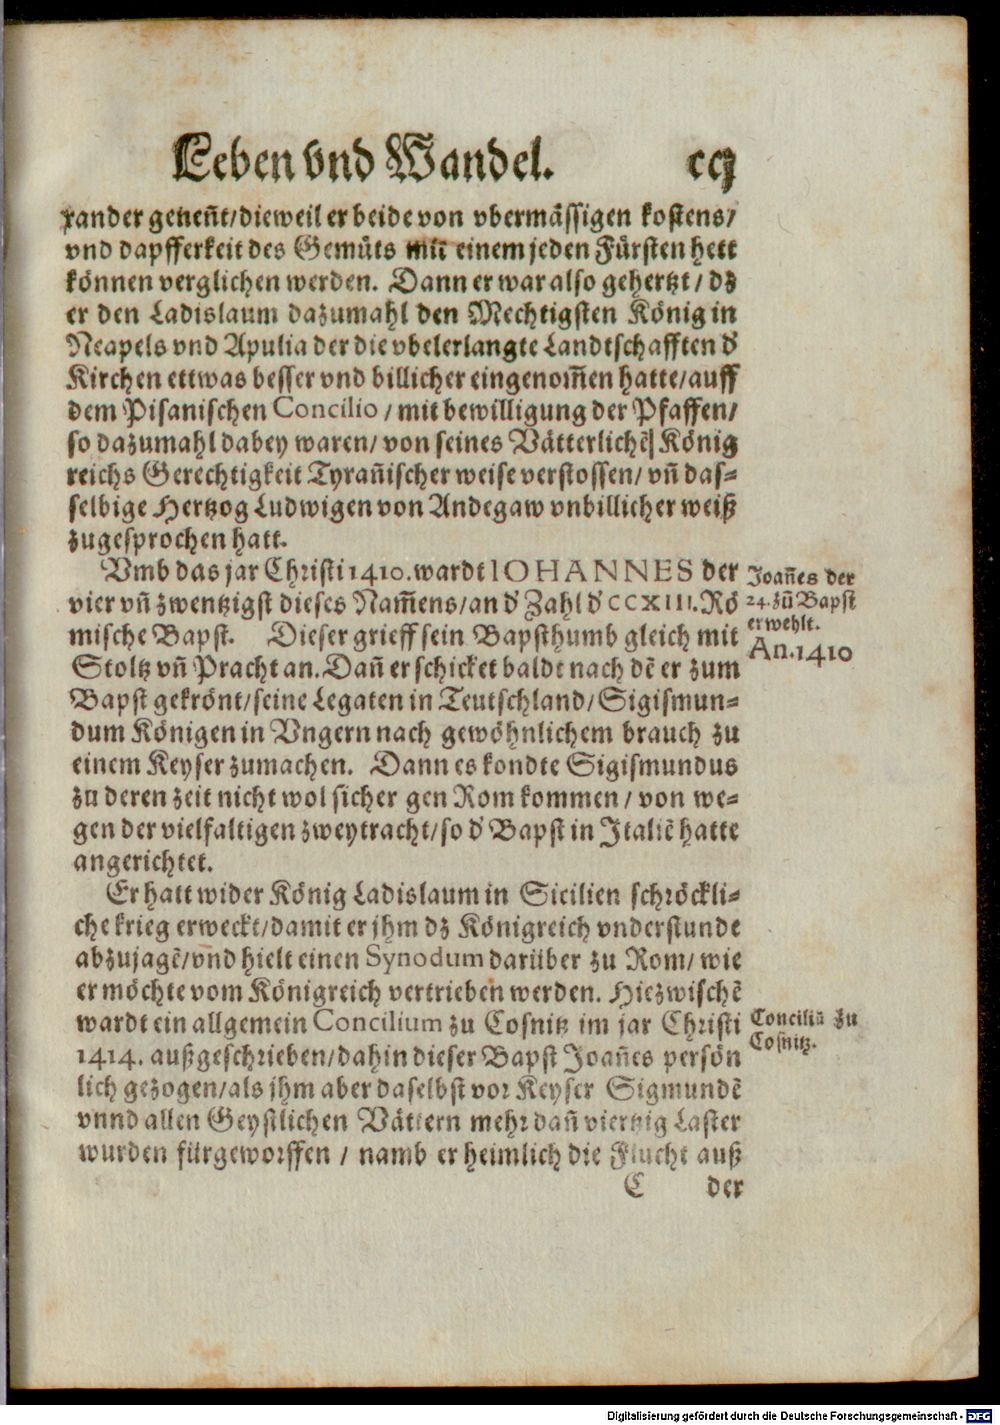 Leben vnd Wandel. ccj
xander geneñt/dieweil er beide von vbermässigen kostens/
vnd dapfferkeit des Gemüts mit einem jeden Fürsten hett
können verglichen werden. Dann er war also gehertzt/dz
er den Ladislaum dazumahl den Mechtigsten König in
Neapels vnd Apulia der die vbelerlangte Landtschafften d'
Kirchen ettwas besser vnd billicher eingenom̃en hatte/auff
dem Pisanischen Concilio/mit bewilligung der Pfaffen/
so dazumahl dabey waren/von seines Vätterlichẽ König
reichs Gerechtigkeit Tyrañischer weise verstossen/vñ das⸗
selbige Hertzog Ludwigen von Andegaw vnbillicher weiß
zugesprochen hatt.
Vmb das jar Christi 1410. wardt IOHANNES der
vier vñ zwentzigst dieses Nam̃ens/an d' Zahl d' CCXIII. Rö
mische Bapst. Dieser grieff sein Bapsthumb gleich mit
Stoltz vñ Pracht an. Dañ er schicket baldt nach dẽ er zum
Bapst gekrönt/seine Legaten in Teutschland/Sigismun⸗
dum Königen in Vngern nach gewöhnlichem brauch zu
einem Keyser zumachen. Dann es kondte Sigismundus
zu deren zeit nicht wol sicher gen Rom kommen/von we⸗
gen der vielfaltigen zweytracht/so d' Bapst in Italiẽ hatte
angerichtet.
Er hatt wider König Ladislaum in Sicilien schröckli⸗
che krieg erweckt/damit er jhm dz Königreich vnderstunde
abzujagẽ/vnd hielt einen Synodum darüber zu Rom/wie
er möchte vom Königreich vertrieben werden. Hiezwischẽ
wardt ein allgemein Concilium zu Cosnitz im jar Christi
1414. außgeschrieben/dahin dieser Bapst Joañes persön
lich gezogen/als jhm aber daselbst vor Keyser Sigmundẽ
vnnd allen Geystlichen Vättern mehr dañ viertzig Laster
wurden fürgeworffen/namb er heimlich die Flucht auß
C der
Joañes der
24. zũ Bapst
erwehlt.
An. 1410
Conciliũ zu
Cosnitz.
Digitalisierung gefördert durch die Deutsche Forschungsgemeinschaft - DFG